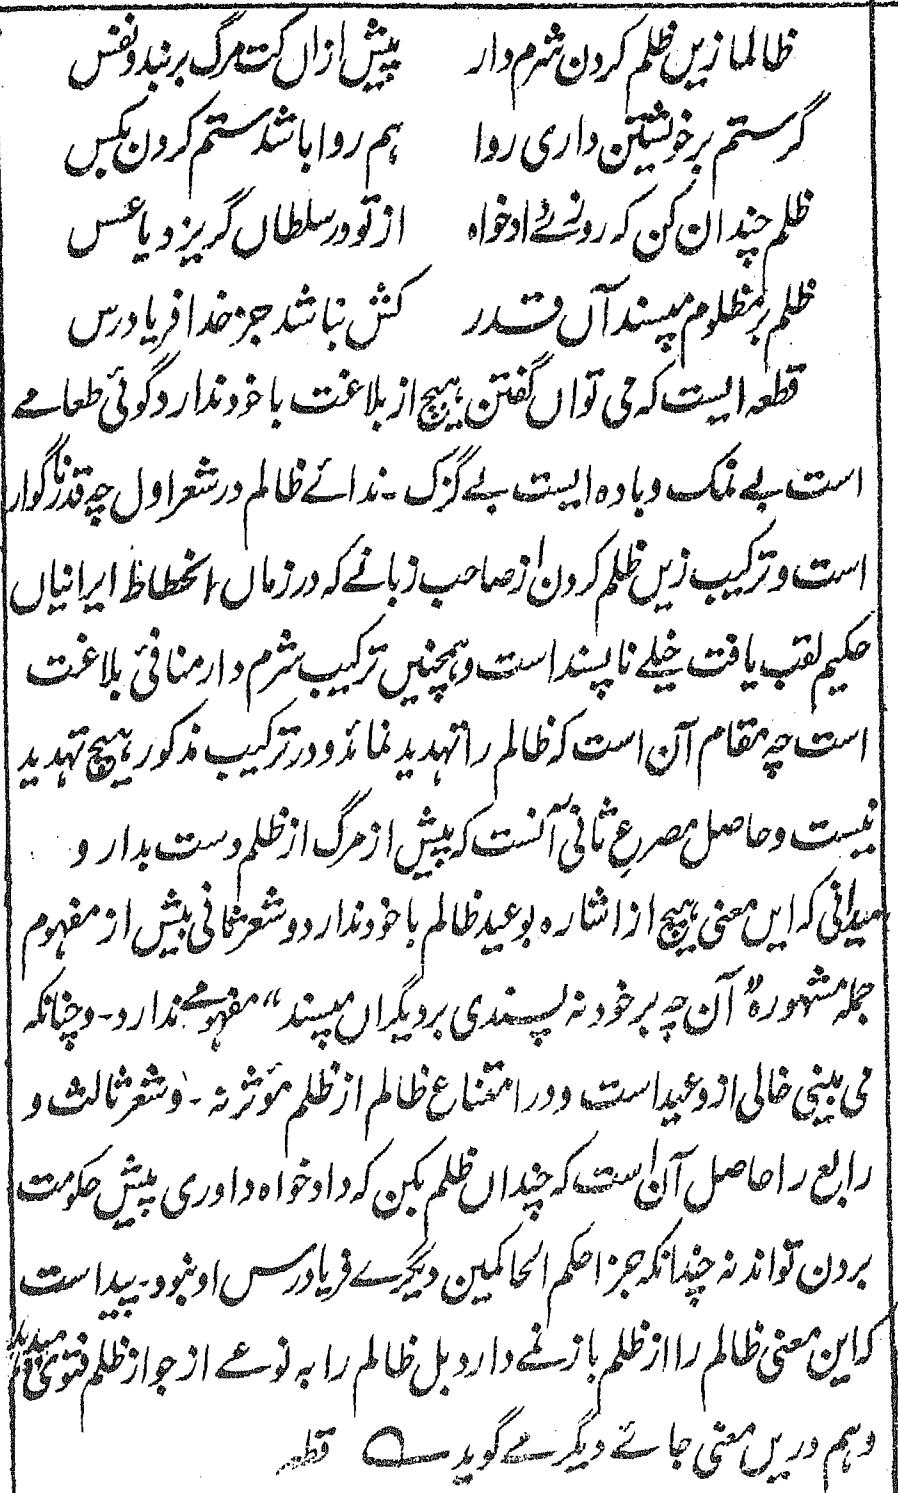 ظالما زیں ظلم کردن شرم دار پیش ازاں کت مرگ بر بندد نفس
گر ستم بر خویشتن داری روا ہم روا باشد ستم کردن بکس
ظلم چندان کن کہ روزے دادخواہ از تو در سلطاں گریزد یا عسس
ظلم بر مظلوم مپسند آں قدر کش نباشد جز خدا فریادرس
قطعہ ایست کہ می تواں گفتن ہیچ از بلاغت با خود ندارد گوئی طعامے
است بے نمک و بادہ ایست بے گزک ۔ ندائے ظالم در شعر اول چہ قدر ناگوار
است و ترکیب زیں ظلم کردن از صاحب زبانے کہ در زمان انحطاط ایرانیاں
حکیم لقب یافت خیلے ناپسند است و ہمچنیں ترکیب شرم دار منافیٔ بلاغت
است چہ مقام آن است کہ ظالم را تہدید نماید و در ترکیب مذکور ہیچ تہدید
نیست و حاصل مصرع ثانی آنست کہ پیش از مرگ از ظلم دست بدار و
میدانی کہ ایں معنی ہیچ از اشارہ بوعید ظالم با خود ندارد و شعر ثانی بیش از مفہوم
جملہ مشہورہ "آن چہ بر خود نہ پسندی بر دیگراں مپسند" مفہومے ندارد ۔ و چنانکہ
می بینی خالی از وعید است و در امتناع ظالم از ظلم مؤثر نہ ۔ و شعر ثالث و
رابع را حاصل آن است کہ چنداں ظلم بکن کہ دادخواہ داوری پیش حکومت
بردن تواند نہ چندانکہ جز احکم الحاکمین دیگرے فریادرس او نبود ۔ پیداست
کہ این معنی ظالم را از ظلم باز نمے دارد بل ظالم را بہ نوعے از جواز ظلم فتوی
و ہم دریں معنی جائے دیگر مے گوید ؎ قطعہ